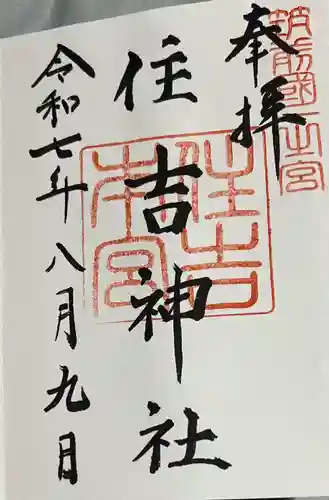 奉拝
筑前國一之宮
住吉神社
住吉本宮
令和七年八月九日